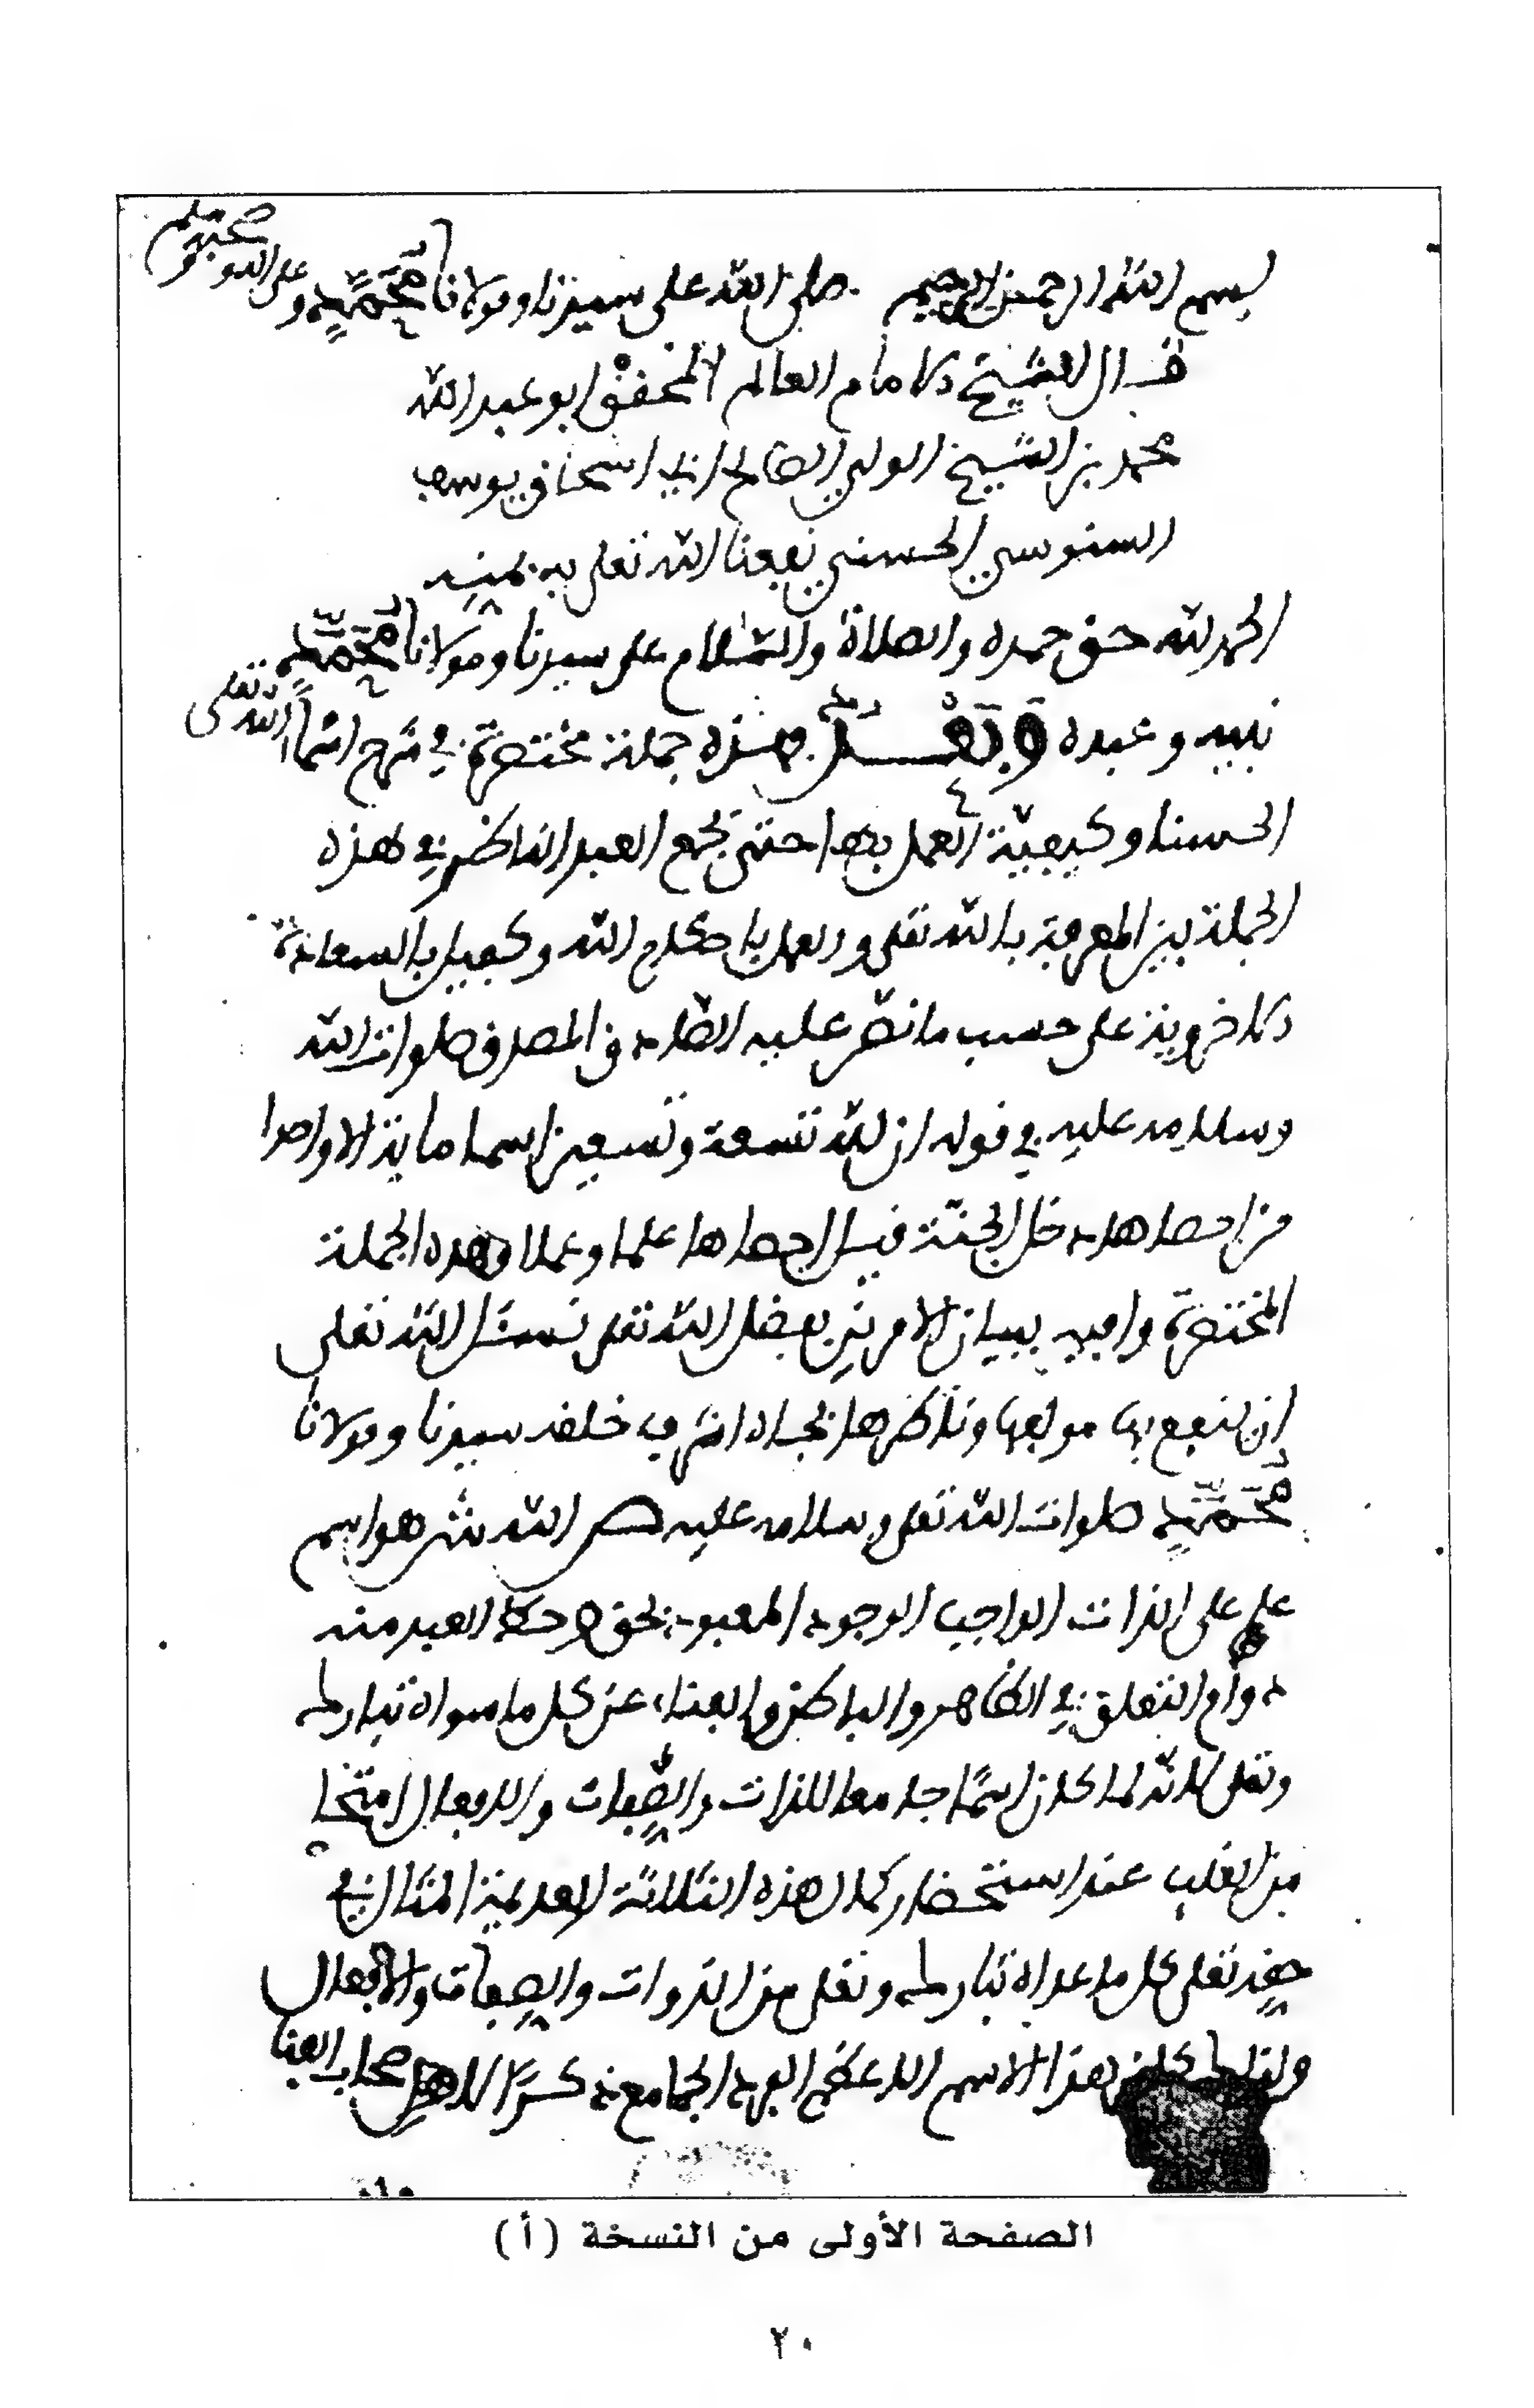 بسم الله الرحمن الرحيم صلى الله على سيدنا ومولانا محمد وعلى اله وصحبه وسلم
قال الشيخ الامام العالم المحقق ابو عبد الله
محمد بن الشيخ الولي الصالح ابي اسحاق يوسف
السنوسي الحسني نفعنا الله تعلى به بمنه
الحمد لله حق حمده والصلاة والسلام على سيدنا ومولانا محمد
نبيه وعبده وبعد فهذه جملة مختصرة في شرح اسما الله تعلى
الحسنا وكيفية العمل بها حتى يجمع العبد الناظر في هذه
الجملة بين المعرفة بالله تعلى والعمل باحكام الله وكفيل بالسعادة
الاخروية على حسب ما نص عليه الصادق المصدوق صلوات الله
وسلامه عليه في قوله ان لله تسعة وتسعين اسما ماية الا واحدا
من احصاها دخل الجنة قيل احصاها علما وعملا وهذه الجملة
المختصرة وافيه ببيان الامرين بفضل الله تعلى نسئل الله تعلى
ان ينفع بها مولفها وناظرها بجاه اشرف خلقه سيدنا ومولانا
محمد صلوات الله تعلى وسلامه عليه الله هو اسم
علم على الذات الواجب الوجود المعبود بحق وحظ العبد منه
دوام التعلق في الظاهر والباطن والفناء عن كل ما سواه تبارك
وتعلى لانه لما كان اسما جامعا للذات والصفات والافعال امتحا
من القلب عند استحضار كمال هذه الثلاثة العديمة المثال في
حقه تعلى كل ما عداه تبارك وتعلى من الذوات والصفات والافعال
ولذلك كان هذا الاسم الاعظم الفرد الجامع ذكرا لاصحاب الفنا
الصفحة الأولى من النسخة (أ)
٢٠